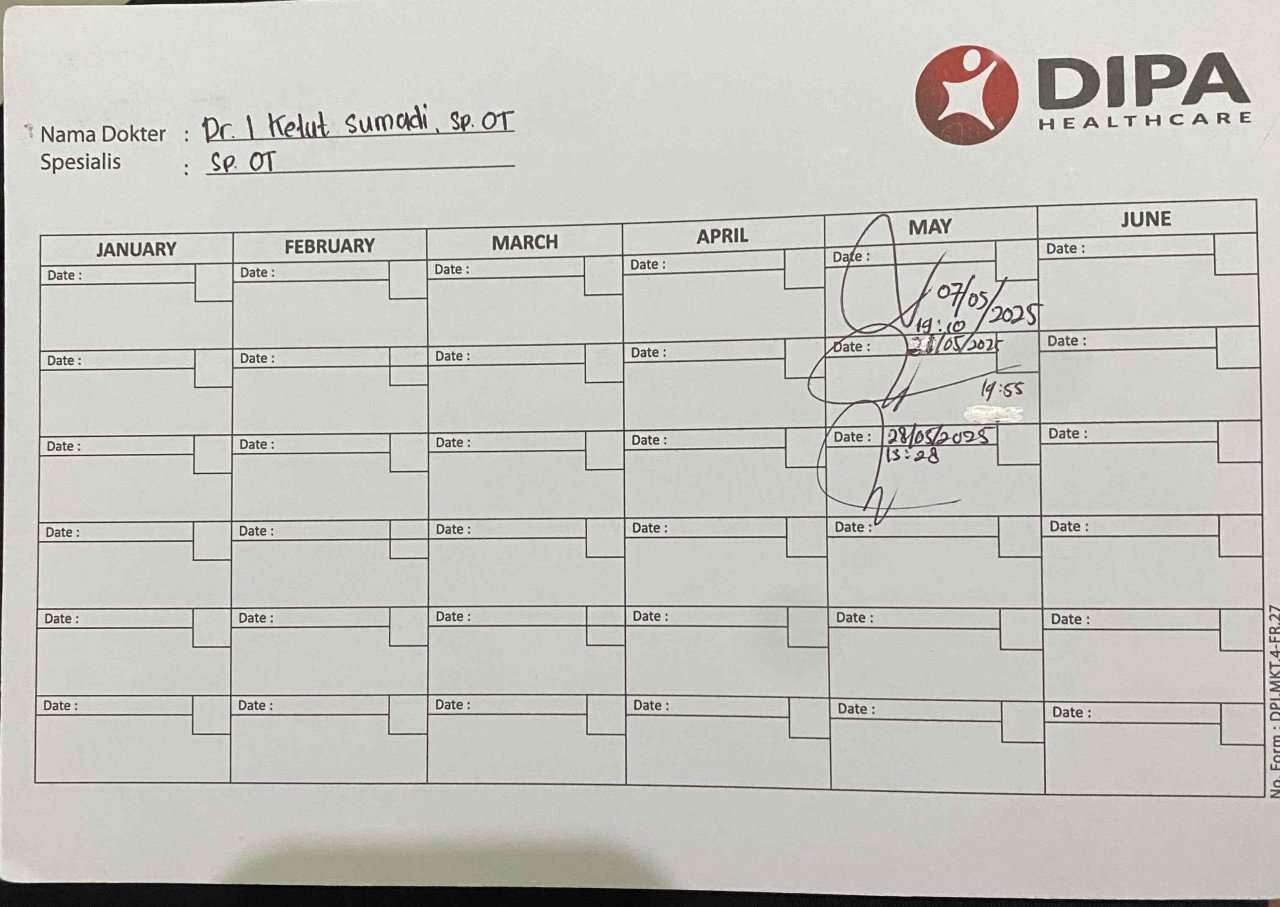 DIPA
HEALTHCARE
Nama Dokter : Dr. I Ketut Sumadi, Sp. OT
Spesialis : Sp. OT
JANUARY FEBRUARY MARCH APRIL MAY JUNE
Date : Date : Date : Date : Date : Date :
07/05/2025
19:10
Date : Date : Date : Date : Date : /05/2025 Date :
19:55
Date : Date : Date : Date : Date : 28/05/2025 Date :
13:28
Date : Date : Date : Date : Date : Date :
Date : Date : Date : Date : Date : Date :
Date : Date : Date : Date : Date : Date :
No. Form : DPI.MKT.4-FR.27